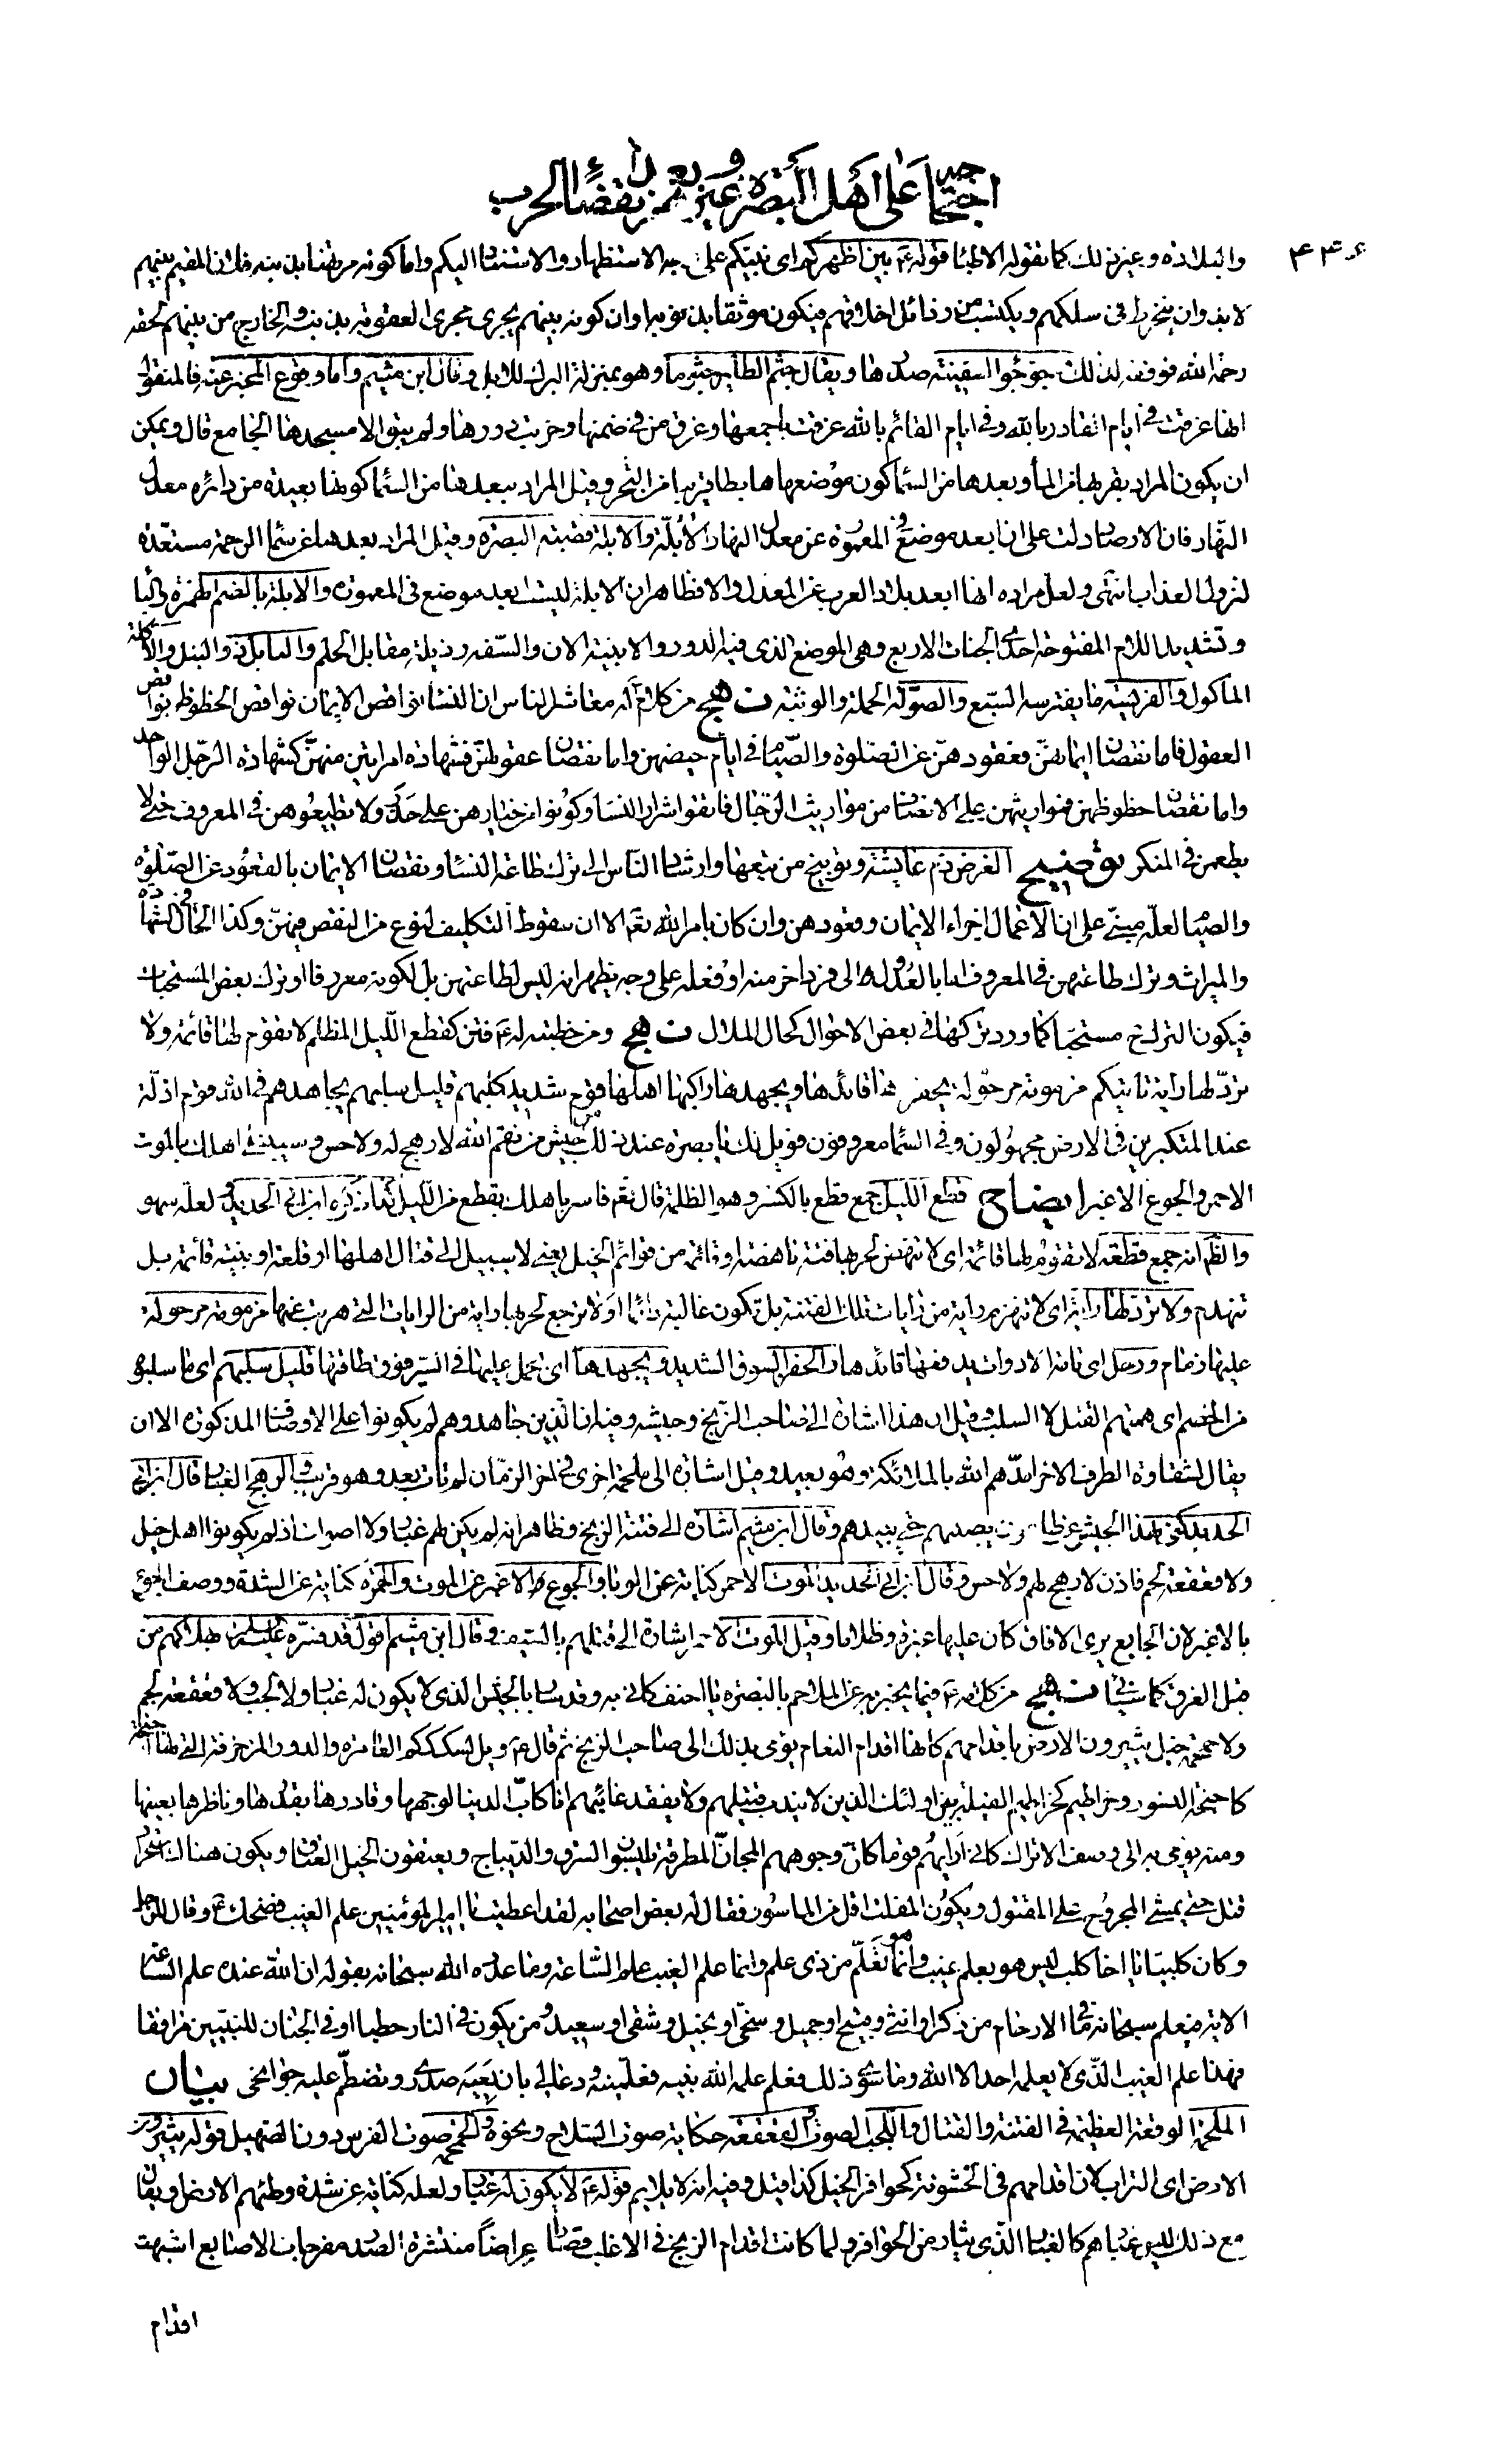 احتجاجه على أهل البصرة وغيرهم بعد انقضاء الحرب
۴۴۶
والبلادة وغير ذلك كما يقوله الاطباء قوله ع بين اظهركم اى بينكم على وجه الاستظهار والاستناد اليكم واما كونه مرتهنا بذنبه فلان المقيم بينهم
لا بد وان ينخرط فى سلكهم ويكتسب من رذائل اخلاقهم فيكون موثقا بذنوبه او ان كونه بينهم يجرى مجرى العقوبة بذنبه والخارج من بينهم لحقه
رحمة الله فوفقه لذلك جؤجؤ السفينة صدرها ويقال جثم الطاير جثوما وهو بمنزلة البروك للابل وقال ابن ميثم واما وقوع المخبر عنه فالمنقول
انها غرقت فى ايام القادر بالله وفى ايام القائم بالله غرقت باجمعها وغرق من فى ضمنها وخربت دورها ولم يبق الا مسجدها الجامع قال ويمكن
ان يكون المراد بقربها من الماء وبعدها من السماء كون موضعها هابطا قريبا من البحر وقيل المراد ببعدها من السماء كونها بعيدة من دائرة معدل
النهار فان الارصاد دلت على ان ابعد موضع فى المعمورة عن معدل النهار الأبلّة والابلة قصبة البصرة وقيل المراد بعدها عن سماء الرحمة مستعدّة
لنزول العذاب انتهى ولعل مراده انها ابعد بلاد العرب عن المعدل والا فظاهر ان الابلة ليست ابعد موضع فى المعمورة والابلة بالضم الهمزة والباء
وتشديد اللام المفتوحة احدى الجنات الاربع وهى الموضع الذى فيه الدور والابنية الان والسّفه رذيلة مقابل الحلم والنابل ذو النبل والاكلة
المأكول والفريسة ما يفترسه السبع والصّولة الحملة والوثبة نهج من كلام له معاشر الناس ان النساء نواقص الايمان نواقص الحظوظ نواقص
العقول فاما نقصان ايمانهنّ فقعودهنّ عن الصّلوة والصّيام فى ايام حيضهن واما نقصان عقولهنّ فشهادة امرأتين منهنّ كشهادة الرّجل الواحد
واما نقصان حظوظهن فمواريثهن على الانصاف من مواريث الرّجال فاتقوا شرار النساء وكونوا من خيارهن على حذر ولا تطيعوهن فى المعروف حتى لا
يطمعن فى المنكر توضيح الغرض ذم عايشة وتوبيخ من تبعها وارشاد الناس الى ترك طاعة النساء ونقصان الايمان بالقعود عن الصّلوة
والصيام لعلّه مبنىّ على ان الاعمال اجزاء الايمان وقعودهن وان كان بامر الله تعالى الا ان سقوط التكليف لنوع من النقص فيهنّ وكذا الحال فى الشهادة
والميراث وترك طاعتهن فى المعروف اما بالعدول الى فرد اخر منه او فعله على وجه يظهر انه ليس لطاعتهن بل لكونه معروفا او ترك بعض المستحبات
فيكون الترك ح مستحبا كما ورد تركها فى بعض الاحوال كحال الملال نهج ومن خطبة له ع فتن كقطع اللّيل المظلم لا تقوم لها قائمة ولا
تردّ لها راية تاتيكم مزمومة مرحولة يحفزها قائدها ويجهدها راكبها اهلها قوم شديد كلبهم قليل سلبهم يجاهدهم فى الله قوم اذلّة
عند المتكبرين فى الارض مجهولون وفى السماء معروفون فويل لك يا بصرة عند ذلك من جيش من نقم الله لا رهج له ولا حس وسيبتلى اهلك بالموت
الاحمر والجوع الاغبر ايضاح قطع الليل جمع قطع بالكسر وهو الظلمة قال تعالى فاسر باهلك بقطع من الليل كذا ذكره ابن ابى الحديد ولعله سهو
والظّ انه جمع قطعة لا تقوم لها قائمة اى لا تنهض لحربها فئة ناهضة او قائمة من قوائم الخيل يعنى لا سبيل الى قتال اهلها او قلعة او بنية قائمة بل
تنهدم ولا تردّ لها راية اى لا تنهزم راية من رايات تلك الفتنة بل تكون غالبة دائما او لا ترجع لحربها راية من الرايات التى هربت عنها مزمومة مرحولة
عليها زمام ورحل اى تامة الادوات يدفعها قائدها والحفز السوق الشديد ويجهدها اى يحمل عليها فى السّير فوق طاقتها قليل سلبهم اى ما سلبوه
من الخصم اى همتهم القتل لا السلب وقيل ان هذا اشارة الى صاحب الزّنج وجيشه وفيه ان الذين جاهدوهم لم يكونوا على الاوصاف المذكورة الا ان
يقال لشقاوة الطرف الاخر امدّهم الله بالملائكة وهو بعيد وقيل اشارة الى ملحمة اخرى فى اخر الزمان لم تات بعد وهو قريب والرهج الغبار قال ابن ابى
الحديد كنى بهذا الجيش عن طاعون يصيبهم حتى يبيدهم وقال ابن ميثم اشارة الى فتنة الزنج وظاهر انه لم يكن لهم غبار ولا اصوات اذ لم يكونوا اهل خيل
ولا قعقعة لجم فاذن لا رهج لهم ولا حس وقال ابن ابى الحديد الموت الاحمر كناية عن الوباء والجوع الاغبر عن الموت والحمرة كناية عن الشدة ووصف الجوع
بالاغبر لان الجايع يرى الافاق كان عليها غبرة وظلاما وقيل الموت الاحمر اشارة الى قتلهم بالسيف وقال ابن ميثم اقول قد فسّره عليه السلم بهلاكهم من
قبل الغرق كما سياتى نهج من كلامه ع فيما يخبر به عن الملاحم بالبصرة يا احنف كانى به وقد سار بالجيش الذى لا يكون له غبار ولا لجب ولا قعقعة لجم
ولا حمحمة خيل يثيرون الارض باقدامهم كانها اقدام النعام يومى بذلك الى صاحب الزنج ثم قال ع ويل لسكككم العامرة والدور المزخرفة التى لها اجنحة
كاجنحة النسور وخراطيم كخراطيم الفيلة من اولئك الذين لا يندب قتيلهم ولا يفقد غائبهم انا كابّ الدنيا لوجهها وقادرها بقدرها وناظرها بعينها
ومنه يومى به الى وصف الاتراك كانى اراهم قوما كانّ وجوههم المجانّ المطرقة يلبسون السرق والدّيباج ويعتقبون الخيل العتاق ويكون هناك استحرار
قتل حتى يمشى المجروح على المقتول ويكون المفلت اقل من الماسور فقال له بعض اصحابه لقد اعطيت يا امير المؤمنين علم الغيب فضحك ع وقال للرجل
وكان كلبيّا يا اخا كلب ليس هو بعلم غيب وانما هو تعلّم من ذى علم وانما علم الغيب علم السّاعة وما عدده الله سبحانه بقوله ان الله عنده علم الساعة
الاية فيعلم سبحانه ما فى الارحام من ذكر او انثى وقبيح او جميل وسخىّ او بخيل وشقى او سعيد ومن يكون فى النار حطبا او فى الجنان للنبيين مرافقا
فهذا علم الغيب الذى لا يعلمه احد الا الله وما سوى ذلك فعلم علمه الله نبيه فعلّمنيه ودعا لى بان يعيه صدرى وتضطمّ عليه جوانحى بيان
الملحمة الوقعة العظيمة فى الفتنة والقتال واللّجب الصوت والقعقعة حكاية صوت السّلاح ونحوه والحمحمة صوت الفرس دون الصّهيل قوله يثيرون
الارض اى التراب لان اقدامهم فى الخشونة كحوافر الخيل كذا قيل وفيه انه لا يلايم قوله ع لا يكون له غبار ولعله كناية عن شدة وطئهم الارض او يقال
مع ذلك ليس غبارهم كالغبار الذى يثار من الحوافر ولما كانت اقدام الزنج فى الاغلب قصارا عراضاً منتشرة الصدر مفرجات الاصابع اشبهت
اقدام